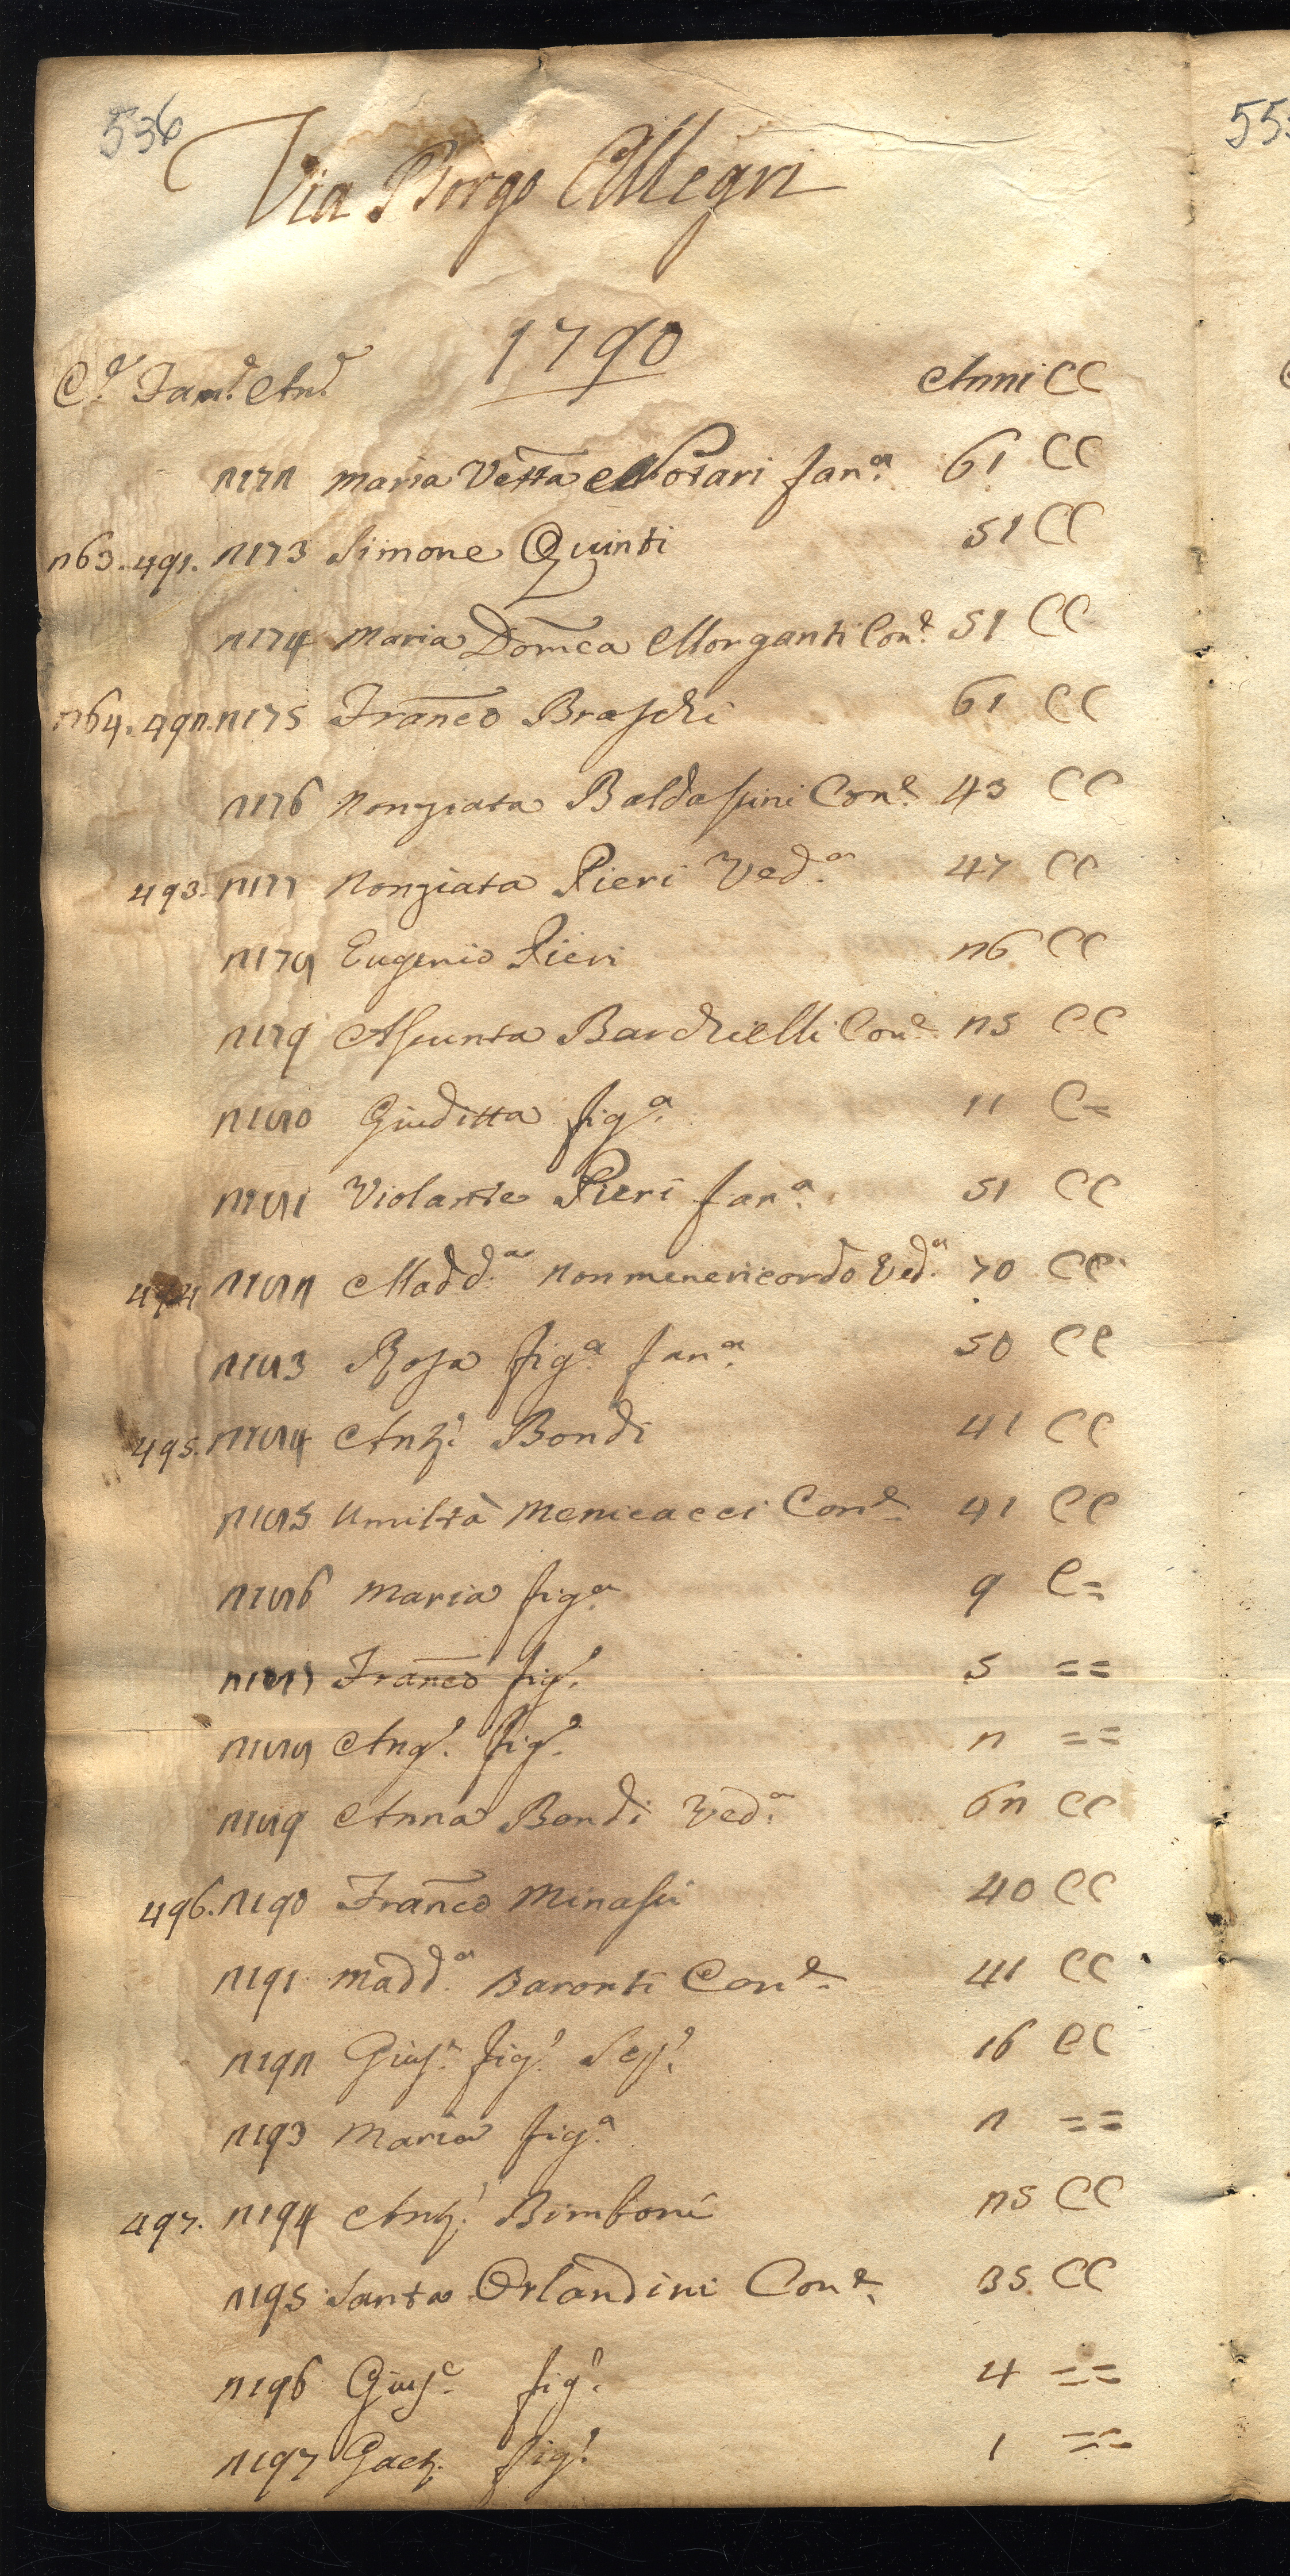 536
55
Via Borgo Allegri
1790
C.e Fam.e An.e Anni CC
2172 Maria Vetta Notari fan.a 61 CC
263. 491. 2173 Simone Quinti 51 CC
2174 Maria Dom̃ca Morganti Con.e 51 CC
264. 492. 2175 Frañco Braschi 61 CC
2176 Nonziata Baldassini Con.e 43 CC
493. 2177 Nonziata Pieri Ved.a 47 CC
2178 Eugenio Pieri 26 CC
2179 Assunta Barchielli Con.e 25 CC
2180 Giuditta fig.a 11 C=
2181 Violante Pieri fan.a 51 CC
494 2182 Madd.a Nonmenericordo Ved.a 70 CC
2183 Rosa fig.a fan.a 50 CC
495. 2184 Ant.o Bondi 41 CC
2185 Umiltà Menicacci Con.e 41 CC
2186 Maria fig.a 9 C=
2187 Frañco fig.o 5 ==
2188 Ang.o fig.o 2 ==
2189 Anna Bondi Ved.a 62 CC
496. 2190 Frañco Minassi 40 CC
2191 Madd.a Baronti Con.e 41 CC
2192 Gius.e fig.o 16 CC
2193 Maria fig.a 2 ==
497. 2194 Ant.o Bimboni 25 CC
2195 Santa Orlandini Con.e 35 CC
2196 Gius.e fig.o 4 ==
2197 Gaet. fig.o 1 ==